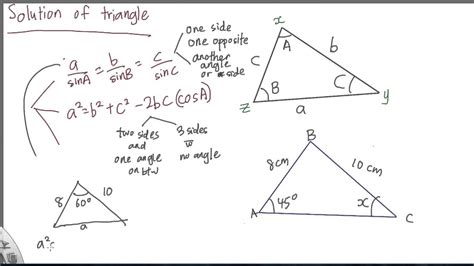 Solution of triangle
one side
one opposite
another
angle
or side
a/sinA = b/sinB = c/sinC
a² = b² + c² - 2bc (cosA)
two sides
and
one angle
on btw
3 sides
w
no angle
x
A
c
b
B
C
z
a
y
8
60°
10
a
a²=
B
8cm
10 cm
A
45°
x
C